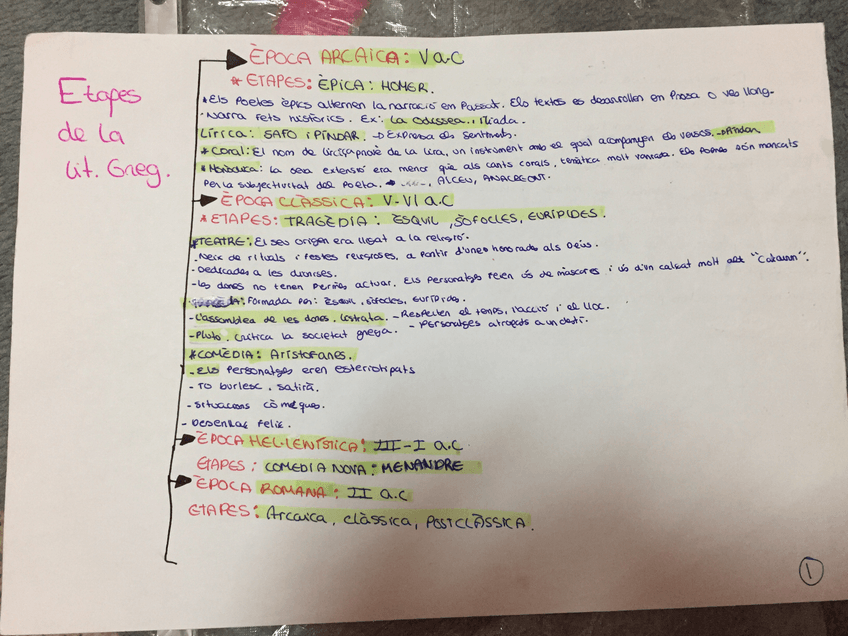 Etapes
de la
lit. Greg.
ÈPOCA ARCAICA: V a.C
* ETAPES: ÈPICA: HOMER.
* Els Poetes èpics alternen la narració en Passat. Els textos es desarrollen en Prosa o vers llarg.
· Narra fets històrics. Ex: La Odissea, Iliada.
Lírica: SAFO i PÍNDAR → Expressa els sentiments.
* Coral: El nom de lírica prové de la lira, un instrument amb el qual acompanyen els versos. → Píndar
* Monòdica: la seva extensió era menor que als cants corals, temàtica molt variada. Els Poemes són marcats
Per la subjectivitat del Poeta. → , ALCEU, ANACREONT.
ÈPOCA CLÀSSICA: V-VI a.C
* ETAPES: TRAGÈDIA: ÈSQUIL, SÒFOCLES, EURÍPIDES.
* TEATRE: El seu origen era lligat a la religió.
· Neix de rituals i festes religioses, a partir d'unes honorades als Déus.
- Dedicades a les dionises.
- les dones no tenen permès actuar. Els Personatges feien ús de màscares i ús d'un calçat molt alt "Coturn".
Formada per: Esquil, Sòfocles, Eurípides.
- L'assemblea de les dones, Lisístrata. - Respecten el temps, l'acció i el lloc.
- Pluto. Crítica la societat grega. - Personatges atrapats a un destí.
* COMÈDIA: Aristòfanes.
- Els Personatges eren esterotipats
- To burlesc, satíra.
- Situacions còmiques.
- Desenllaç feliç.
ÈPOCA HEL·LENÍSTICA: III-I a.C
ETAPES: COMEDIA NOVA: MENANDRE
ÈPOCA ROMANA: II a.C
ETAPES: Arcaica, clàssica, POSTCLÀSSICA.
1